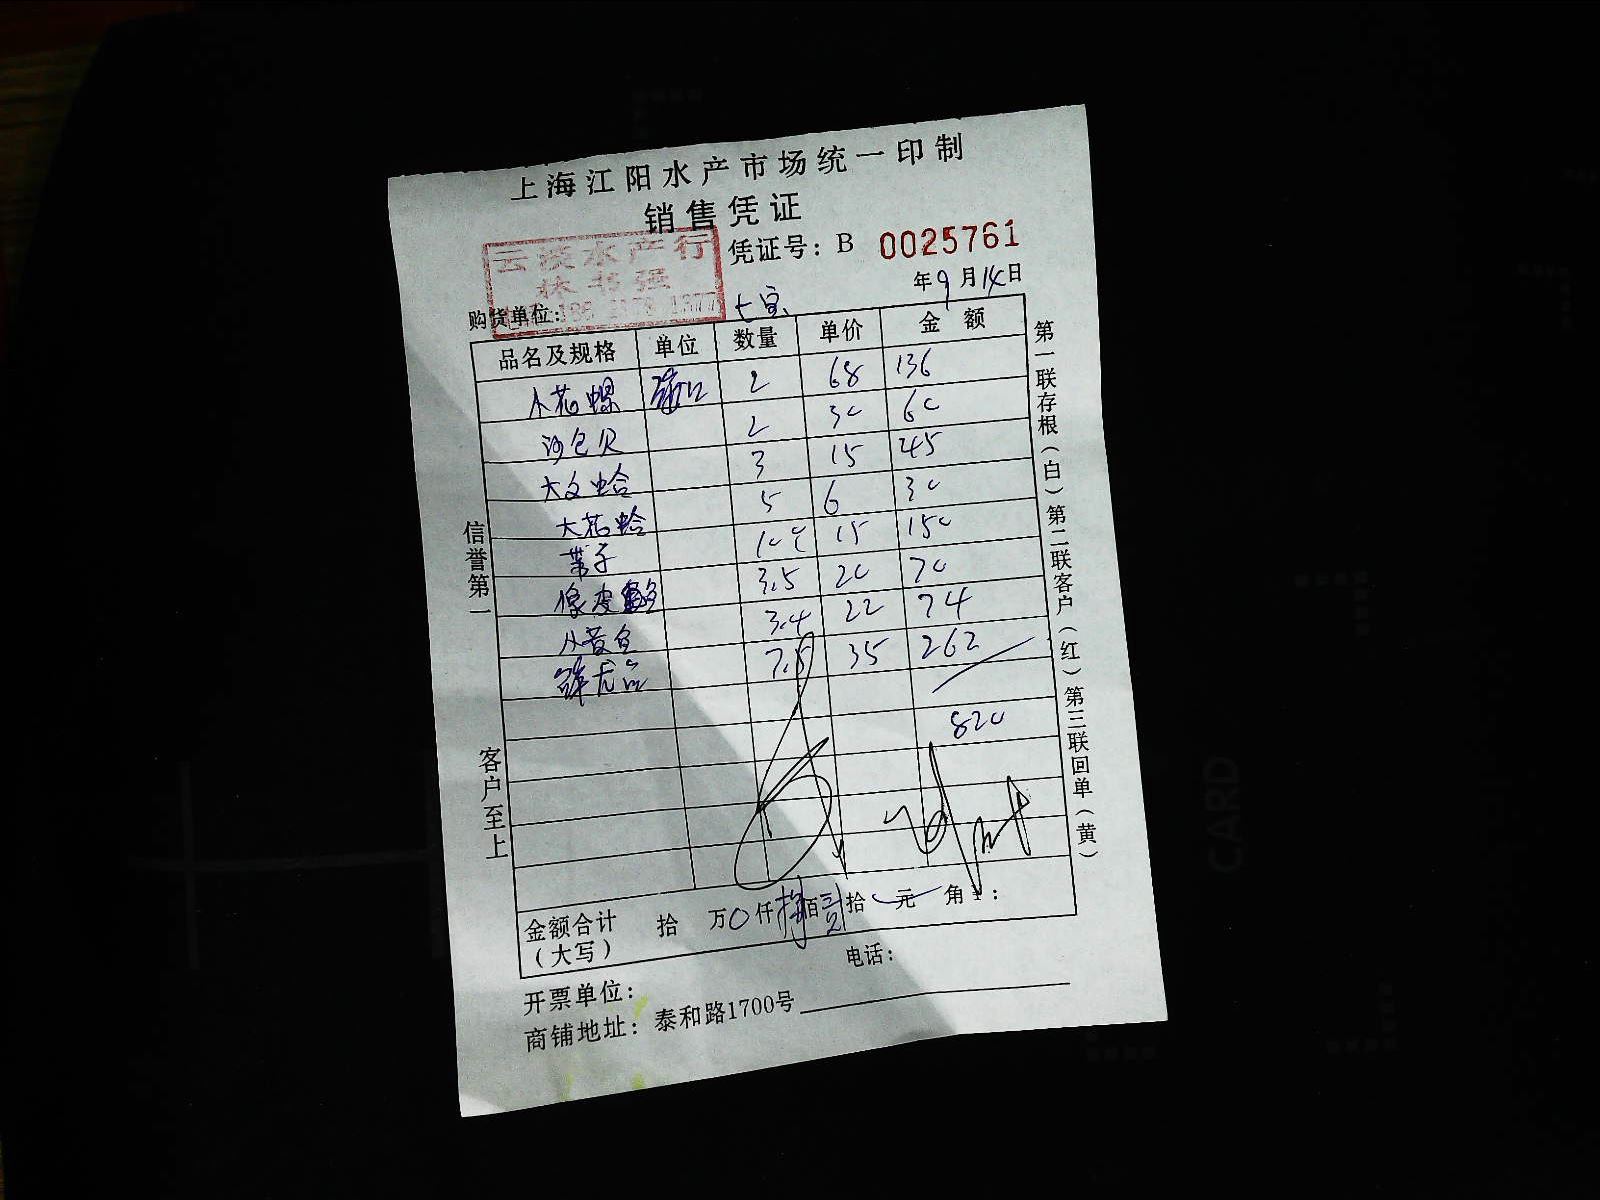 上海江阳水产市场统一印制
销售凭证
云淡水产行
林书强
凭证号：B 0025761
年9月14日
购货单位：七宝
品名及规格 单位 数量 单价 金额
小花螺 2 68 136
沙包贝 2 30 60
大文蛤 3 15 45
大花蛤 5 6 30
带子 10个 15 150
像皮 3.5 20 70
3.4 22 74
7.5 35 262
820
金额合计（大写） 拾 万0仟捌佰贰拾 元 角
电话：
开票单位：
商铺地址：泰和路1700号
信誉第一
客户至上
第一联存根（白）第二联客户（红）第三联回单（黄）
CARD